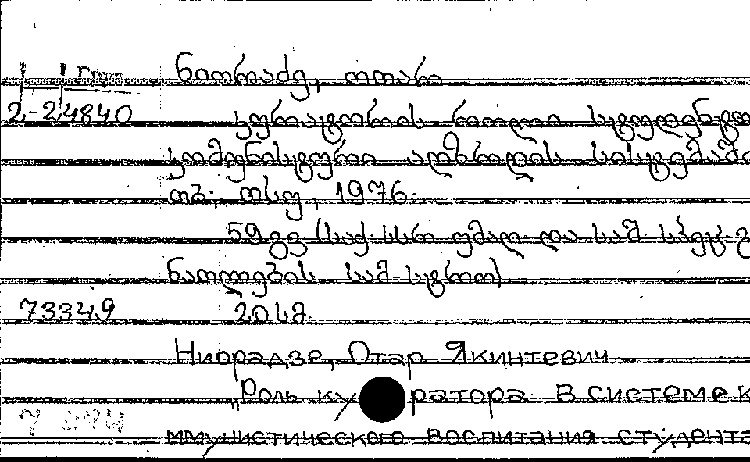 ნიორაძე, ოთარ
2-24840 კურატორის როლი სტუდენტთ
კომუნისტური აღზრდის სისტემაში
თბ., თსუ, 1976.
59 გვ. (საქ. სსრ უმაღ. და საშ. სპეც. გ
ნათლების სამ-სტრო)
73349 20 კ.
Ниорадзе, Отар Якинтевич
"Роль ку ратора в системе к
ммунистического воспитания студента